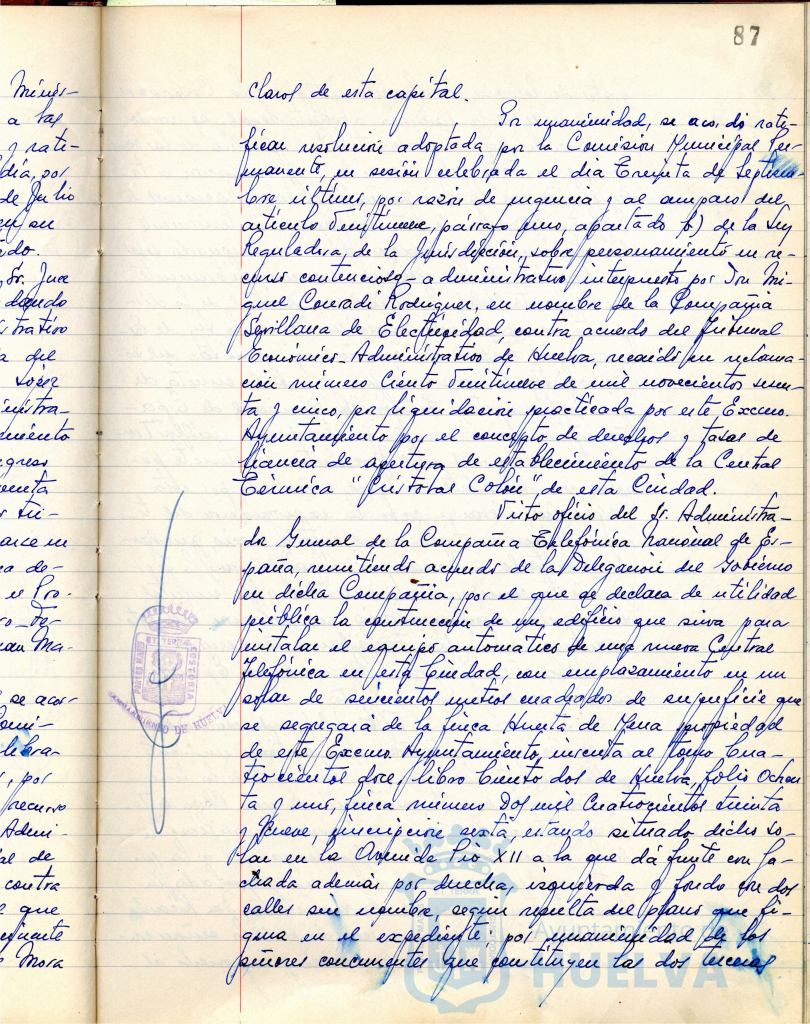 87
Minis-
a las
y rati-
día, por
de Julio
en su
do.
Sr. Juez
dando
strativo
a del
López
inistra-
miento
greso
arece en
a de-
e el Pro-
ro-Por
uan Ma-
se acor-
omi-
lebra-
, por
recurso
Admi-
al de
contra
e que
Mora
claros de esta capital.
Por unanimidad, se acordó rati-
ficar resolución adoptada por la Comisión Municipal Per-
manente, en sesión celebrada el dia Treinta de Septiem-
bre último, por razón de urgencia y al amparo del
artículo Veintinueve, párrafo uno, apartado b) de la Ley
Reguladora, de la Jurisdicción, sobre personamiento en re-
curso contencioso-administrativo interpuesto por Don Mi-
guel Conradi Rodriguez, en nombre de la Compañia
Sevillana de Electricidad, contra acuerdo del Tribunal
Económico-Administrativo de Huelva, recaido en reclama-
ción número Ciento Veintinueve de mil novecientos sesen-
ta y cinco, por liquidación practicada por este Excmo.
Ayuntamiento por el concepto de derechos y tasas de
licencia de apertura de establecimiento de la Central
Térmica "Cristobal Colón" de esta Ciudad.
Visto oficio del Sr. Administra-
dor General de la Compañia Telefónica Nacional de Es-
paña, remitiendo acuerdo de la Delegación del Gobierno
en dicha Compañia, por el que se declara de utilidad
pública la construcción de un edificio que sirva para
instalar el equipo automatico de una nueva Central
Telefónica en esta Ciudad, con emplazamiento en un
solar de seiscientos metros cuadrados de superficie que
se segregará de la finca Huerta de Mena propiedad
de este Excmo. Ayuntamiento, inscrita al tomo Cua-
trocientos doce, libro Ciento dos de Huelva, folio Ochen-
ta y uno, finca número Dos mil Cuatrocientos treinta
y Nueve, inscripción sexta, estando situado dicho so-
lar en la Avenida Pio XII a la que dá frente con fa-
chada además por derecha, izquierda y fondo con dos
calles sin nombre, según resulta del plano que fi-
gura en el expediente, por unanimidad de los
señores concurrentes que constituyen las dos terceras
Ayuntamiento
HUELVA